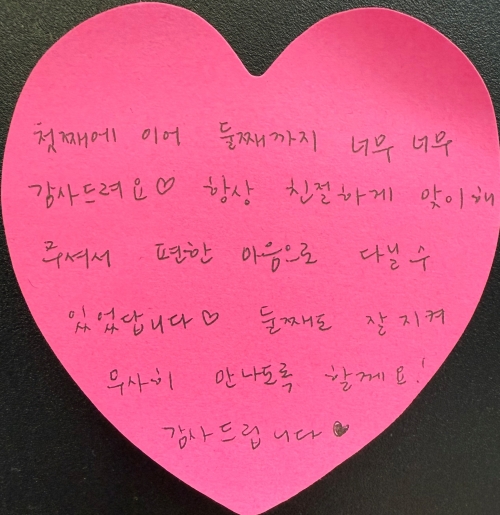 첫째에 이어 둘째까지 너무 너무
감사드려요♡ 항상 친절하게 맞이해
주셔서 편한 마음으로 다닐 수
있었답니다♡ 둘째도 잘 지켜
무사히 만나도록 할께요!
감사드립니다♥